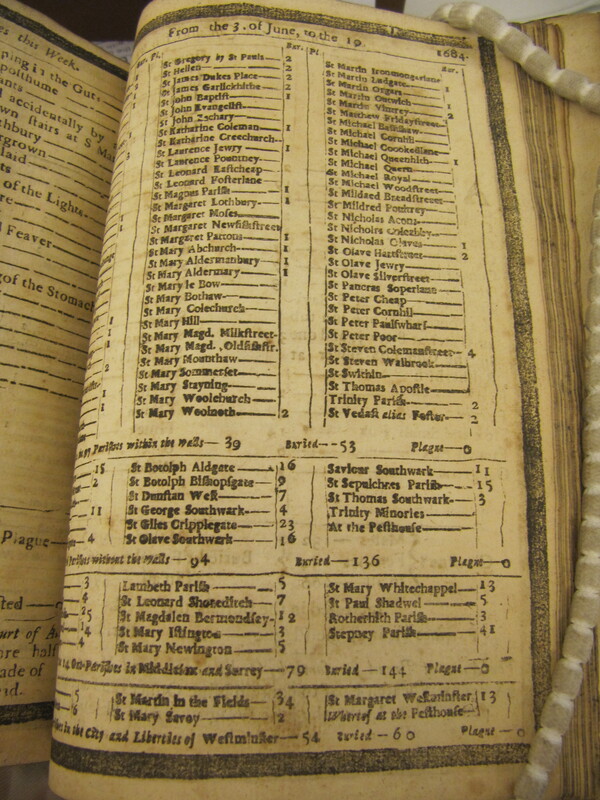 es this Week.
From the 3. of June, to the 10. 1684.
Bur. Pl. Bur.
St Gregory by St Pauls — 2
St Hellen — 2
St James Dukes Place — 2
St James Garlickhithe — 2
St John Baptist — 1
St John Evangelist
St John Zachary
St Katharine Coleman — 1
St Katharine Creechurch
St Laurence Jewry — 1
St Laurence Pountney
St Leonard Eastcheap
St Leonard Fosterlane
St Magnus Parish — 1
St Margaret Lothbury — 1
St Margaret Moses
St Margaret Newfishstreet
St Margaret Pattons — 1
St Mary Abchurch — 1
St Mary Aldermanbury — 1
St Mary Aldermary — 1
St Mary le Bow
St Mary Bothaw
St Mary Colechurch
St Mary Hill
St Mary Magd. Milkstreet
St Mary Magd. Oldfishstr.
St Mary Mounthaw
St Mary Sommerset
St Mary Stayning
St Mary Woolchurch
St Mary Woolnoth — 2
St Martin Ironmongerlane
St Martin Ludgate
St Martin Orgars
St Martin Outwich
St Martin Vintrey
St Matthew Fridaystreet
St Michael Bassishaw
St Michael Cornhil
St Michael Crookedlane
St Michael Queenhith — 1
St Michael Quern
St Michael Royal
St Michael Woodstreet
St Mildred Breadstreet
St Mildred Poultrey
St Nicholas Acons
St Nicholas Coleabby
St Nicholas Olaves — 1
St Olave Hartstreet — 2
St Olave Jewry
St Olave Silverstreet
St Pancras Soperlane
St Peter Cheap
St Peter Cornhil
St Peter Paulswharf
St Peter Poor
St Steven Colemanstreet — 4
St Steven Walbrook
St Swithin
St Thomas Apostle
Trinity Parish — 2
St Vedast alias Foster — 2
97 Parishes within the walls — 39 Buried — 53 Plague — 0
St Botolph Aldgate — 16
St Botolph Bishopsgate — 9
St Dunstan West — 7
St George Southwark — 4
St Giles Cripplegate — 23
St Olave Southwark — 16
Saviour Southwark — 11
St Sepulchres Parish — 15
St Thomas Southwark — 3
Trinity Minories
At the Pesthouse
Parishes without the walls — 94 Buried — 136 Plague — 0
Lambeth Parish — 5
St Leonard Shoreditch — 7
St Magdalen Bermondsey — 12
St Mary Islington — 3
St Mary Newington — 5
St Mary Whitechappel — 13
St Paul Shadwel — 5
Rotherhith Parish — 3
Stepney Parish — 41
14 Out-Parishes in Middlesex and Surrey — 79 Buried — 144 Plague — 0
St Martin in the Fields — 34
St Mary Savoy — 2
St Margaret Westminster 13
Whereof at the Pesthouse
in the City and Liberties of Westminster — 54 Buried — 60 Plague — 0